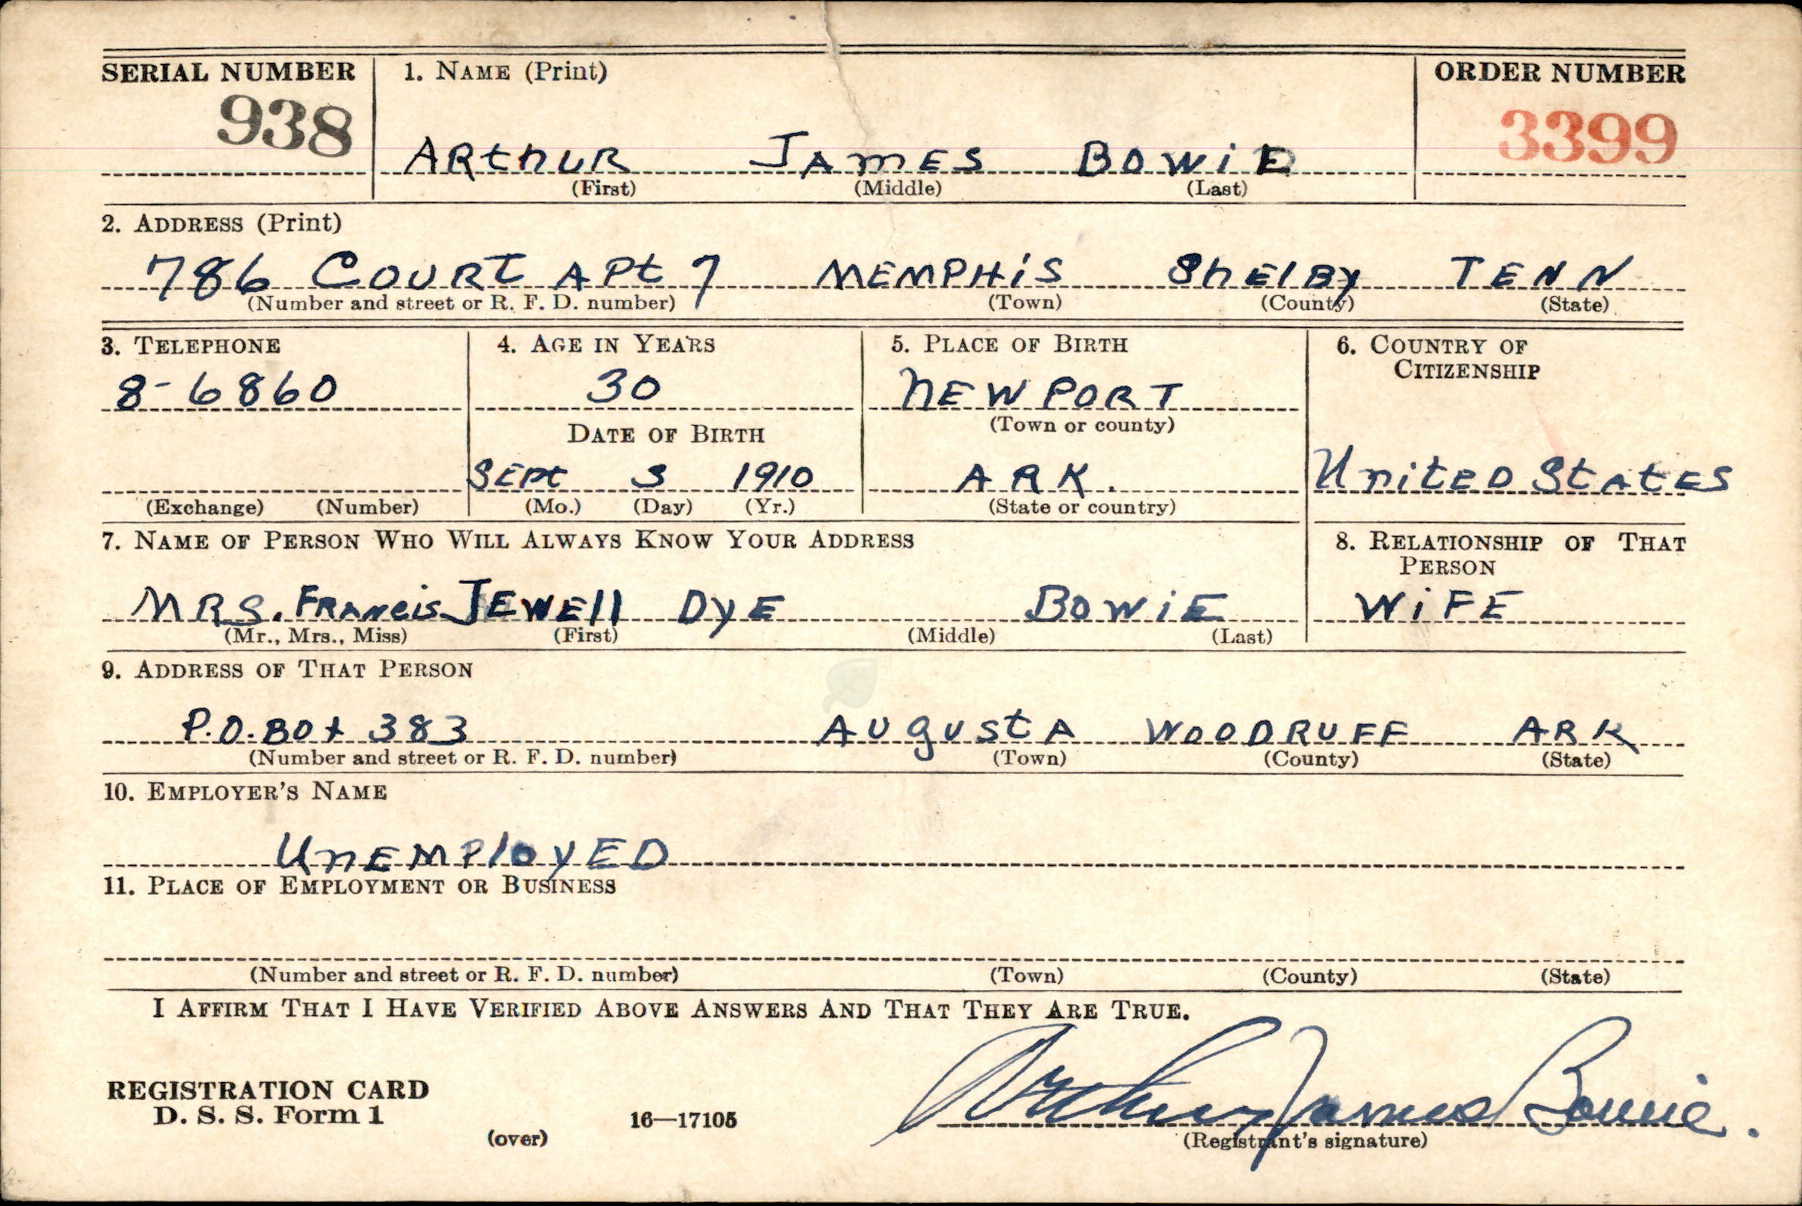 SERIAL NUMBER 1. NAME (Print) ORDER NUMBER
938 3399
ARthUR JAMES BOWiE
(First) (Middle) (Last)
2. ADDRESS (Print)
786 COURT APt 7 MEMPHiS ShElBy TENN
(Number and street or R. F. D. number) (Town) (County) (State)
3. TELEPHONE 4. AGE IN YEARS 5. PLACE OF BIRTH 6. COUNTRY OF
CITIZENSHIP
8-6860 30 NEWPORT
DATE OF BIRTH (Town or county)
SEPt 3 1910 ARK. UnitED StAtES
(Exchange) (Number) (Mo.) (Day) (Yr.) (State or country)
7. NAME OF PERSON WHO WILL ALWAYS KNOW YOUR ADDRESS 8. RELATIONSHIP OF THAT
PERSON
MRS. FRANcis JEWEll DyE BOWiE WiFE
(Mr., Mrs., Miss) (First) (Middle) (Last)
9. ADDRESS OF THAT PERSON
P.O. BOx 383 AUgUStA WOODRUFF ARK
(Number and street or R. F. D. number) (Town) (County) (State)
10. EMPLOYER'S NAME
UnEMPloyED
11. PLACE OF EMPLOYMENT OR BUSINESS
(Number and street or R. F. D. number) (Town) (County) (State)
I AFFIRM THAT I HAVE VERIFIED ABOVE ANSWERS AND THAT THEY ARE TRUE.
REGISTRATION CARD
D. S. S. Form 1 16—17105 Arthur James Bowie.
(over) (Registrant's signature)